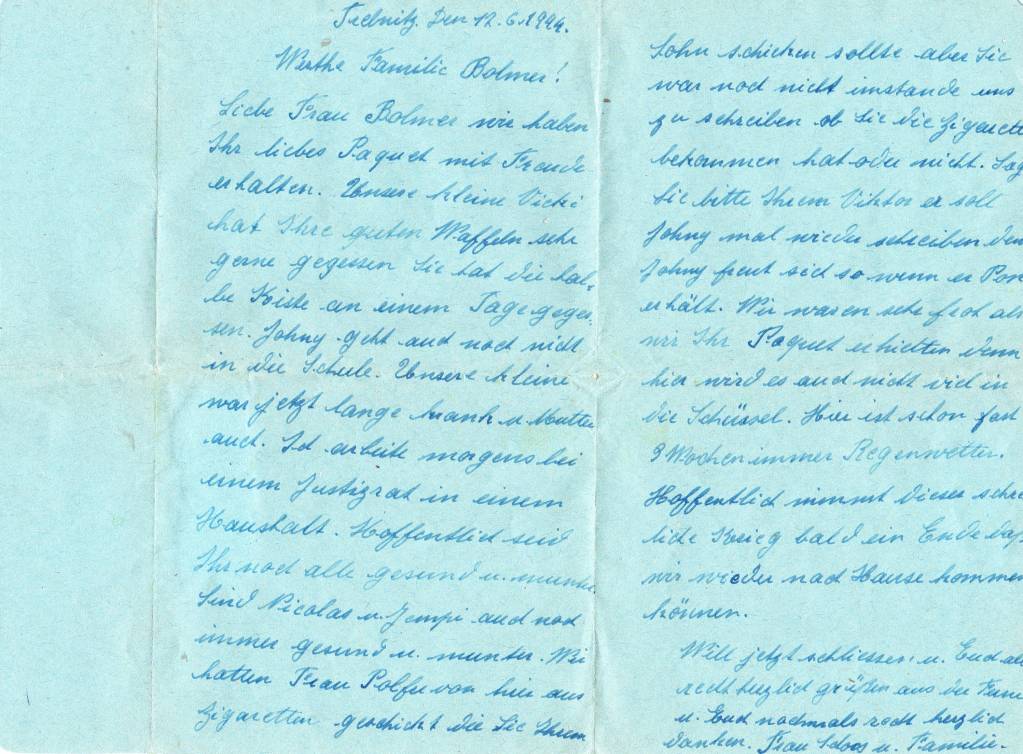 Trebnitz. Den 12.6.1944.
Werthe Familie Bolmer!
Liebe Frau Bolmer wir haben
Ihr liebes Paquet mit Freude
erhalten. Unsere kleine Vicki
hat Ihre guten Waffeln sehr
gerne gegessen Sie hat die hal-
be Kiste an einem Tage geges-
sen. Johny geht auch noch nicht
in die Schule. Unsere kleine
war jetzt lange krank u. Mutter
auch. Ich arbeite morgens bei
einem Justizrat in einem
Haushalt. Hoffentlich seid
Ihr noch alle gesund u. munter.
Sind Nicolas u. Jempi auch noch
immer gesund u. munter. Wir
hatten Frau von hier aus
Zigaretten geschickt die Sie Ihrem
Sohn schicken sollte aber Sie
war noch nicht imstande uns
zu schreiben ob Sie die Zigarette
bekommen hat oder nicht. Sag
Sie bitte Ihrem Viktor er soll
Johny mal wieder schreiben den
Johny freut sich so wenn er Pos
erhält. Wir waren sehr froh als
wir Ihr Paquet erhielten denn
hier wird es auch nicht viel in
die Schüssel. Hier ist schon fast
3 Wochen immer Regenwetter.
Hoffentlich nimmt dieser schre
liche Krieg bald ein Ende daß
wir wieder nach Hause kommen
können.
Will jetzt schliessen u. Euch al
recht herzlich grüßen aus der Ferne
u. Euch nochmals recht herzlich
danken. Frau Schoos u. Familie.